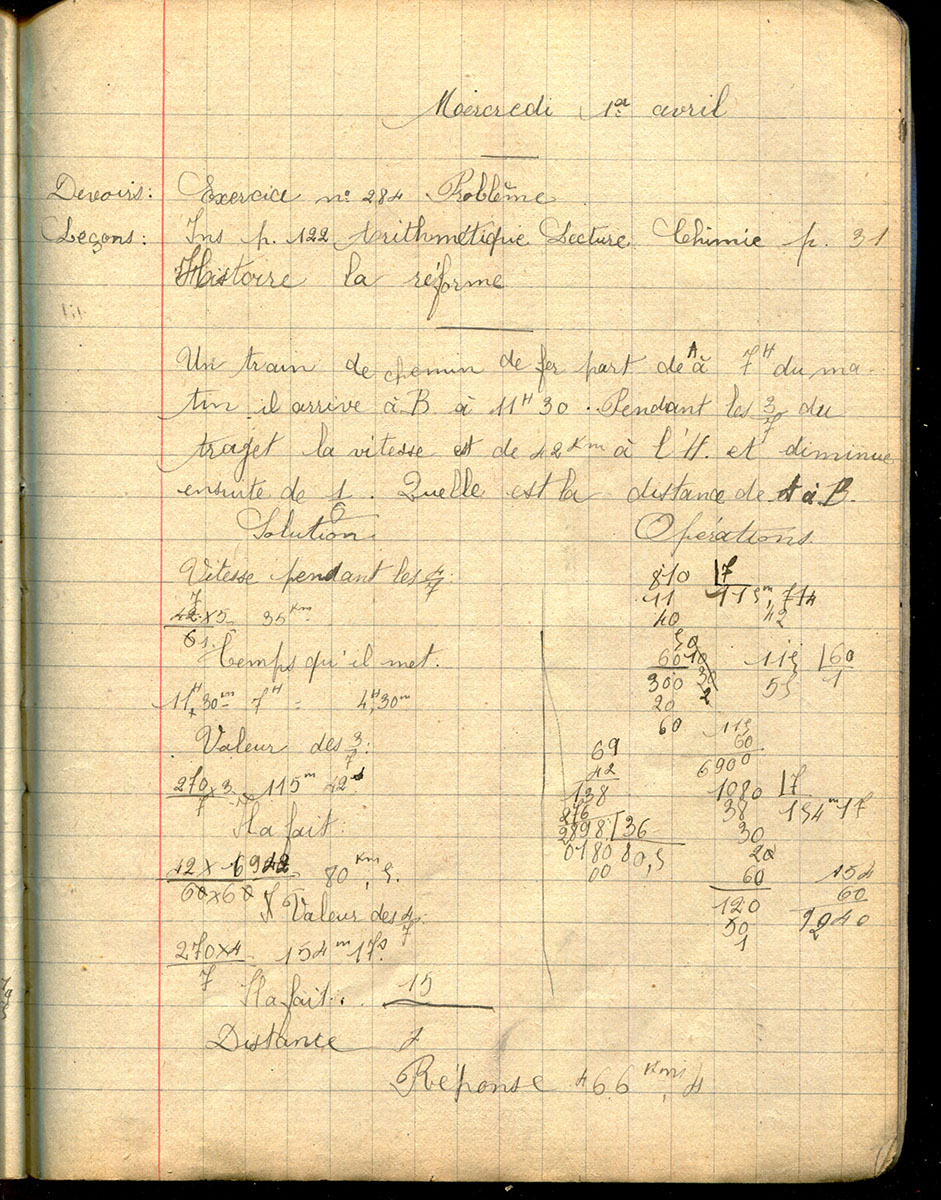 Mercredi 1er avril
Devoirs: Exercice n° 284 Problème
Leçons: Ins p. 122 Arithmétique Lecture Chimie p. 31
Histoire la réforme
Un train de chemin de fer part de A à 7H du ma-
tin il arrive à B à 11H30. Pendant les 3/7 du
trajet la vitesse est de 42 Km à l'H. et diminue
ensuite de 1/6. Quelle est la distance de A à B.
Solution
Vitesse pendant les 4/7:
42×5/6 = 35 Km
Temps qu'il met.
11H,30m - 7H = 4H,30m
Valeur des 3/7:
270×3/7 115m 42s
Il a fait:
42×6942/60×60 80 Km,5.
Valeur des 4/7
270×4/7 154m 17s
Il a fait: 15
Distance
Réponse 166 Kms,4
Opérations
810 |7
11 115m,714
40 42
50
60 10
300 30
20 2
60
115 |60
55 1
115
60
6900
69
42
138
276
2898 |36
0180 80,5
00
1080 |7
38 154m17
30
20
60
120
50
1
154
60
9240